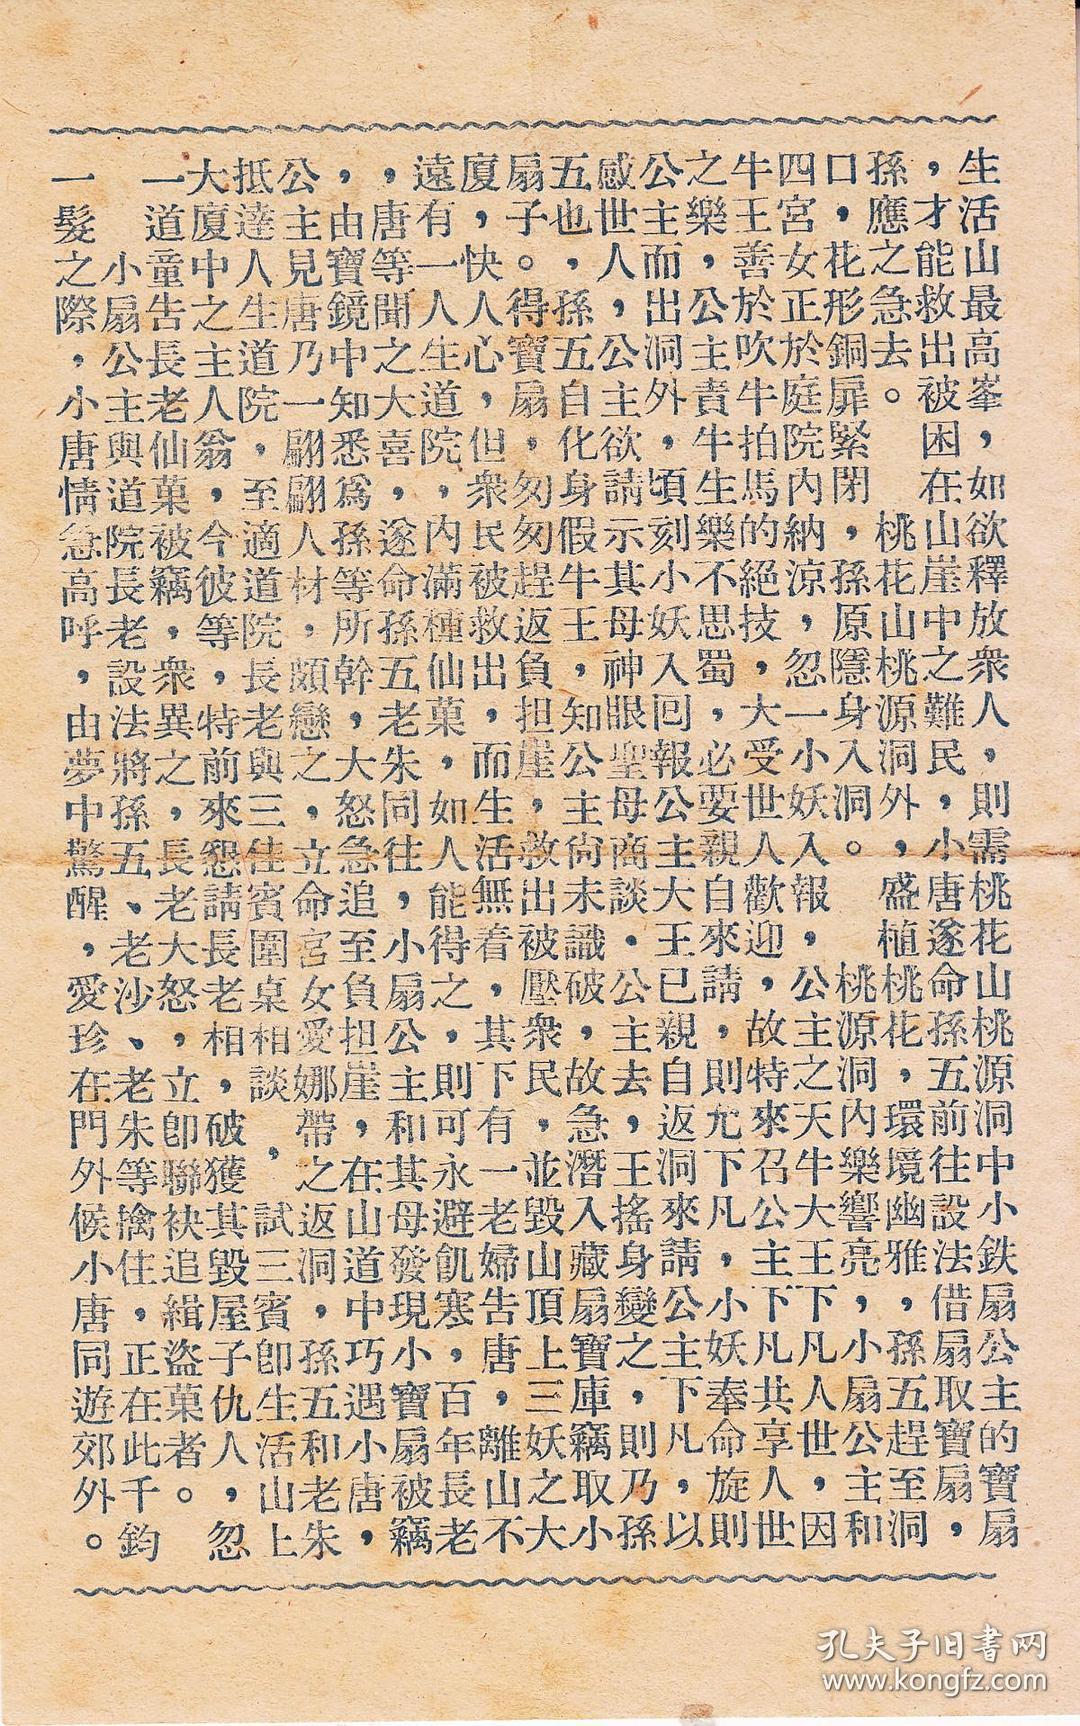 生活山最高峯，如欲釋放衆人，則需桃花山桃源洞中小鉄扇公主的寶扇
，才能救出被困在山崖中之難民，小唐遂命孫五前往設法借扇取寶扇，
孫應之急去。　桃花山桃源洞外，盛植桃花，環境幽雅，孫五趕至洞
口，花形銅扉緊閉，孫原隱身入洞。　桃源洞內樂響亮，小扇公主和
四宮女正於庭院內納涼，忽一小妖入報，公主之天牛大王下凡人世，因
牛王善於吹牛拍馬的絕技，大受世人歡迎，故特來召公主下凡共享人世
之樂，公主責牛生樂不思蜀，必要親自來請，則允下凡，小妖奉命旋則
公主而出洞外，頃刻小妖入回報公主大王已親自返洞來請公主下凡，以
感世人，公主欲請示其母神眼聖母商談．公主去，王搖身變之，則乃孫
五也，孫五自化身假牛王，知公主尙未識破，故急潛入藏扇寶庫竊取小
扇子。得寶扇，匆匆趕返負担崖，救出被壓衆民，並毀山頂上三妖之大
廈，快人心，但衆民被救出，而生活無着，其下有一老婦告唐，離山不
遠有一人生道院，內滿種仙菓，如人能得之，則可永避飢寒，百年長老
，唐等聞之大喜，遂命孫五老朱同往，小扇公主和其母發現小寶扇被竊
，由寶鏡中知悉爲孫等所幹，大怒急追至負担崖，在山道中巧遇小唐，
公主見唐乃一翩翩人材，頗戀之，立命宮女愛娜帶之返洞，孫五和老朱
抵達人生道院，至適道院長老與三佳賓圍桌相談，試三賓卽生活山上
大廈中之主人翁，今彼等，特前來懇請長老相，破獲其毀屋子仇人，忽
一道童告長老仙菓被竊，衆異之，長老大怒，立卽聯袂追緝盜菓者。
小扇公主與道院長老設法將孫五、老沙、老朱等擒住，正在此千鈞
一髮之際，小唐情急高呼，由夢中驚醒，愛珍在門外候小唐同遊郊外。
孔夫子旧書网
www.kongfz.com